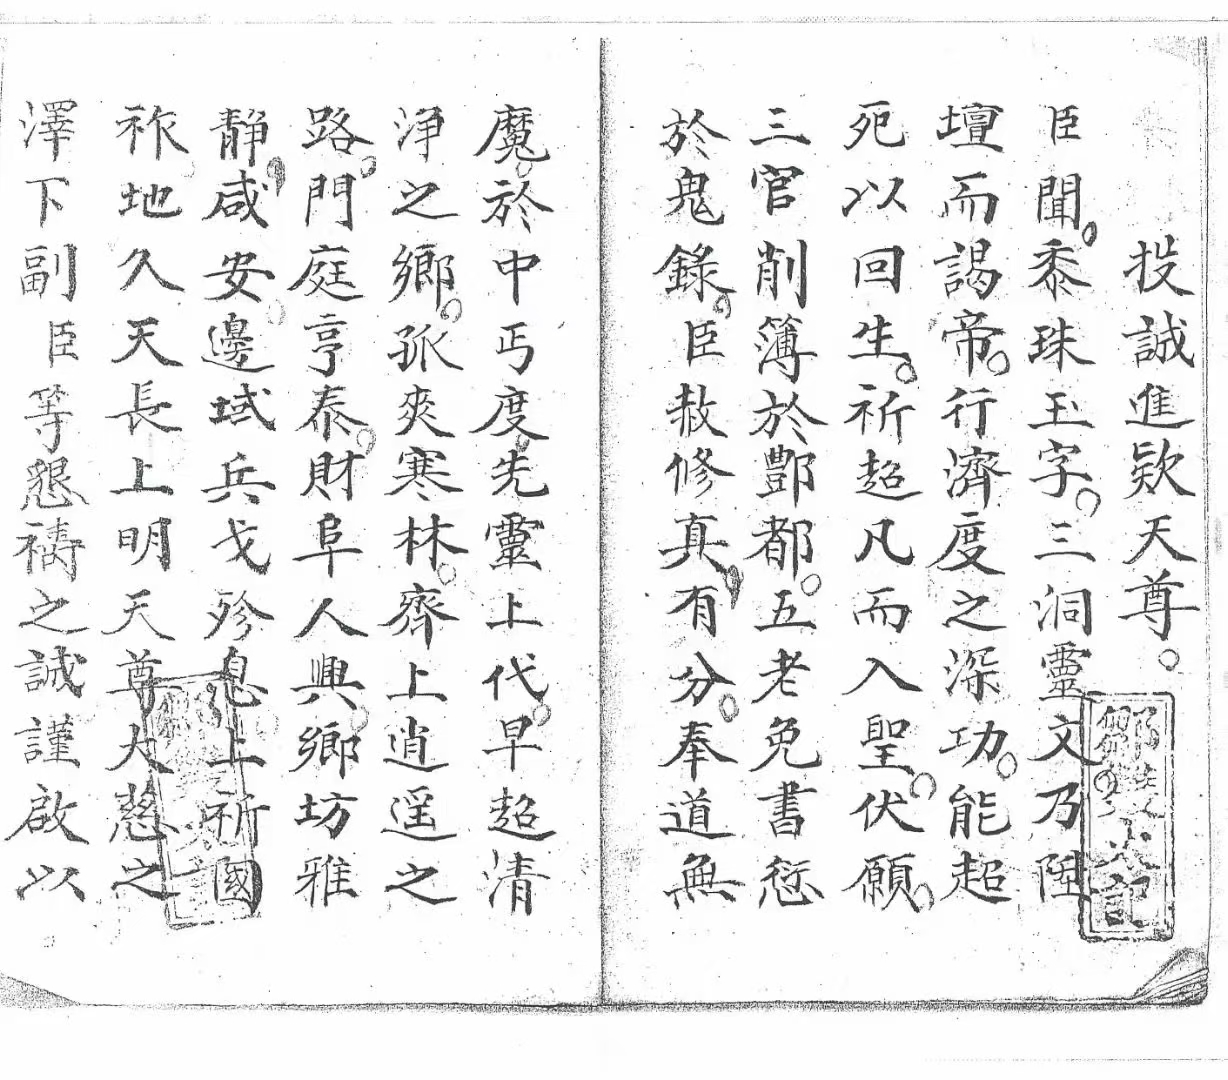 投誠進欵天尊。
臣聞。黍珠玉字。三洞靈文。乃陞
壇而謁帝。行濟度之深功。能超
死以回生。祈超凡而入聖。伏願。
三官削簿於酆都。五老免書愆
於鬼錄。臣赦修真。有分。奉道無
魔。於中丐度。先靈上代。早超清
净之鄉。孤爽寒林。齊上逍遥之
路。門庭亨泰。財阜人興。鄉坊雅
靜。咸安。邊域兵戈殄息。上祈國
祚。地久天長。上明天尊大慈之
澤。下副臣等懇禱之誠。謹啟以